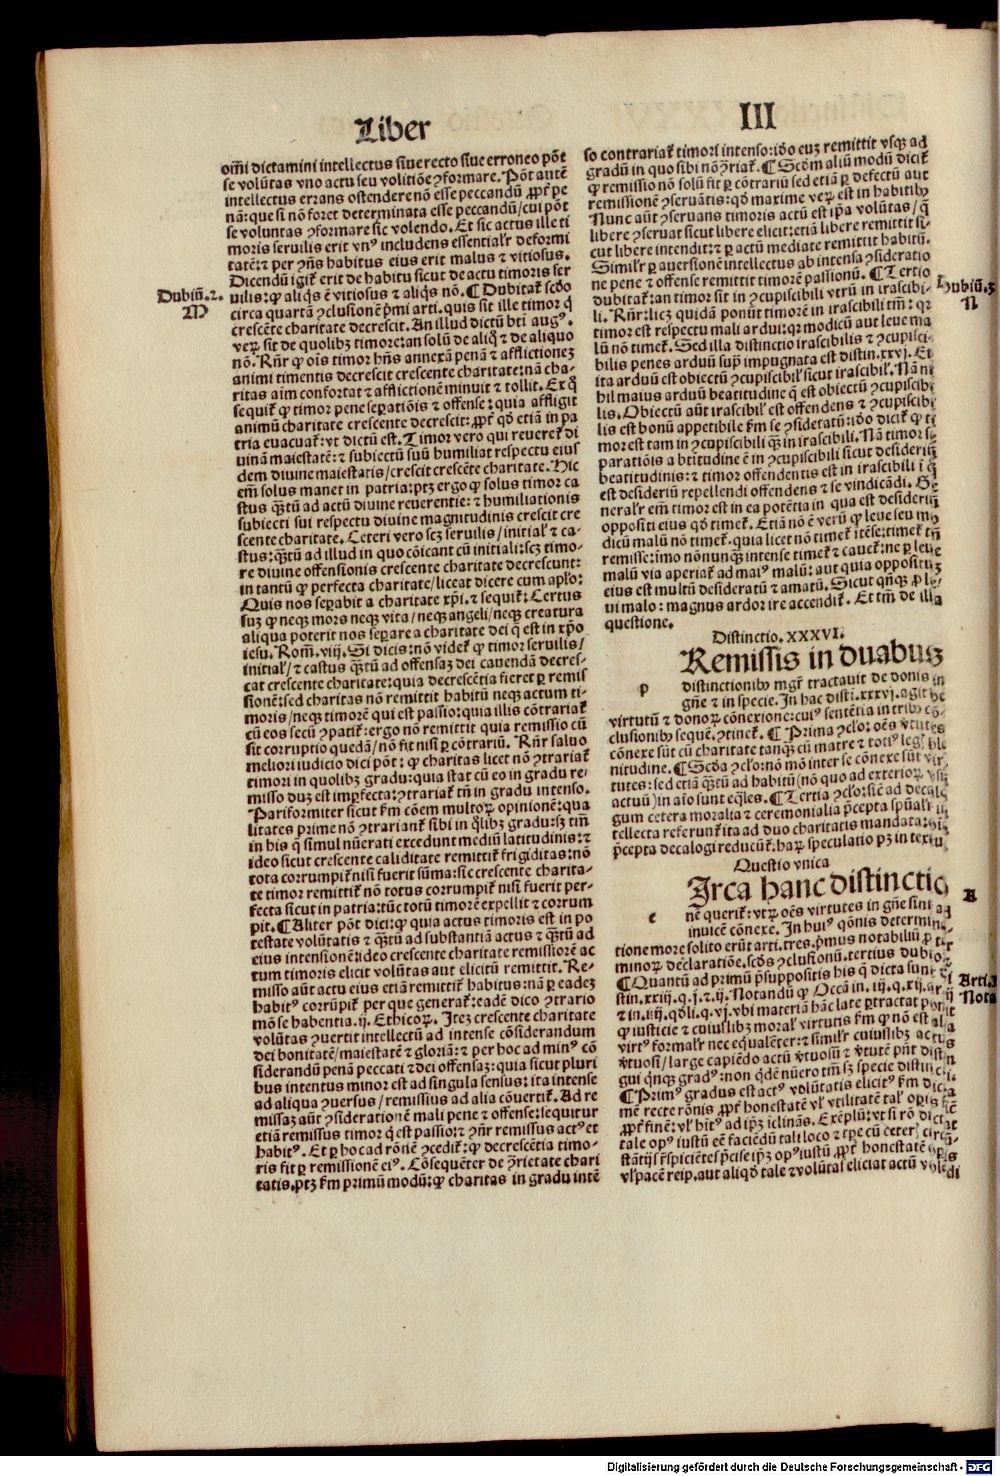 Liber
III
oīm̄i dictamini intellectus siue recto siue erroneo pōt
se volūtas vno actu seu volitiōe ꝯformare. Pōt autē
intellectus errans ostendere nō esse peccandū ꝓpt̄ pe
nā: que si nō foret determinata esse peccandū / cui pōt
se voluntas ꝯformare sic volendo. Et sic actus ille ti
moris seruilis erit vnꝰ includens essentialr̄ deformi
tatē: ⁊ per ꝯn̄s habitus eius erit malus ⁊ vitiosus.
Dicendū igit̄ erit de habitu sicut de actu timoris ser
uilis: ꝙ aliq̄s ē vitiosus ⁊ aliq̄s nō. ¶ Dubitat̄ scd̄o
Dubiū.2.
M
circa quartā ꝯclusionē p̄mi arti. quis sit ille timor q̄
crescēte charitate decrescit. An illud dictū bt̄i augꝰ.
veꝝ sit de quolibꝫ timore: an solū de aliq̄ ⁊ de aliquo
nō. Rn̄r ꝙ oīs timor hn̄s annexā penā ⁊ afflictioneꝫ
animi timentis decrescit crescente charitate: nā cha-
ritas aīm confortat ⁊ afflictionē minuit ⁊ tollit. Ex q̄
sequit̄ ꝙ timor pene seꝑatiōis ⁊ offense: quia affligit
animū charitate crescente decrescit: ꝓpt̄ qd̄ etiā in pa
tria euacuat̄: vt dictū est. Timor vero qui reueret̄ di
uinā maiestatē: ⁊ subiectū suū humiliat respectu eius
dem diuine maiestatis / crescit crescēte charitate. Hic
em̄ solus manet in patria: ptꝫ ergo ꝙ solus timor ca
stus q̄ꝫtū ad actū diuine reuerentie: ⁊ humiliationis
subiecti sui respectu diuine magnitudinis crescit cre
scente charitate. Ceteri vero scꝫ seruilis / initial̄ ⁊ ca-
stus: q̄ꝫtū ad illud in quo cōicant cū initiali: scꝫ timo-
re diuine offensionis crescente charitate decrescunt:
in tantū ꝙ perfecta charitate / liceat dicere cum apl̄o:
Quis nos seꝑabit a charitate xp̄i. ⁊ sequit̄: Certus
suꝫ ꝙ neqꝫ mors neqꝫ vita / neqꝫ angeli / neqꝫ creatura
aliqua poterit nos seꝑare a charitate dei q̄ est in xp̄o
iesu. Rom̄. viij. Si dicis: nō videt̄ ꝙ timor seruilis /
initial̄ / ⁊ castus q̄ꝫtū ad offensaꝫ dei cauendā decres-
cat crescente charitate: quia decrescētia fieret ꝑ remis
sionē: sed charitas nō remittit habitū neqꝫ actum ti-
moris / neqꝫ timorē qui est passio: quia illis cōtrariat̄
cū eos secū ꝯpatit̄: ergo nō remittit quia remissio cū
sit corruptio quedā / nō fit nisi ꝑ cōtrariū. Rn̄r saluo
meliori iudicio dici pōt: ꝙ charitas licet nō ꝯtrariat̄
timori in quolibꝫ gradu: quia stat cū eo in gradu re-
misso duꝫ est imꝑfecta: ꝯtrariat̄ tn̄ in gradu intenso.
Pariformiter sicut ẜm cōem multoꝝ opinionē: qua
litates prime nō ꝯtrariant̄ sibi in q̄libꝫ gradu: sꝫ tm̄
in his q̄ simul nūerati excedunt mediū latitudinis: ⁊
ideo sicut crescente caliditate remittit̄ frigiditas: nō
tota corrumpit̄ nisi fuerit sūma: sic crescente charita-
te timor remittit̄ nō totus corrumpit̄ nisi fuerit per-
fecta sicut in patria: tūc totū timorē expellit ⁊ corrum
pit. ¶ Aliter pōt dici: ꝙ quia actus timoris est in po
testate volūtatis ⁊ q̄ꝫtū ad substantiā actus ⁊ q̄ꝫtū ad
eius intensionē: ideo crescente charitate remissiorē ac
tum timoris elicit voluntas aut elicitū remittit. Re-
missio aūt actu eius etiā remittit̄ habitus: nā ꝑ eadeꝫ
habitꝰ corrūpit̄ per que generat̄: eadē dico ꝯtrario
mō se habentia. ij. Ethicoꝝ. Iteꝫ crescente charitate
volūtas ꝯuertit intellectū ad intense cōsiderandum
dei bonitatē / maiestatē ⁊ gloriā: ⁊ per hoc ad minꝰ cō
siderandū penā peccati ⁊ dei offensaꝫ: quia sicut pluri
bus intentus minor est ad singula sensus: ita intense
ad aliqua ꝯuersus / remissius ad alia cōuertit̄. Ad re
missaꝫ aūt ꝯsiderationē mali pene ⁊ offense: sequitur
etiā remissus timor q̄ est passio: ⁊ ꝯn̄r remissus actꝰ et
habitꝰ. Et ꝑ hoc ad rōnē ꝯcedit̄: ꝙ decrescētia timo-
ris fit ꝑ remissionē eiꝰ. Cōsequēter de ꝯrietate chari
tatis. ptꝫ ẜm primū modū: ꝙ charitas in gradu intē
so contrariat̄ timori intenso: iō eūꝫ remittit vsqꝫ ad
gradū in quo sibi nō ꝯriat̄. ¶ Scd̄m aliū modū dicit̄
ꝙ remissio nō solū fit ꝑ cōtrariū sed etiā ꝑ defectū aut
remissionē ꝯseruātis: qd̄ maxime veꝝ est in habitibꝰ
Nunc aūt ꝯseruans timoris actū est ip̄a volūtas / q̄
libere ꝯseruat sicut libere elicit: etiā libere remittit si-
cut libere intendit: ⁊ ꝑ actū mediate remittit habitū.
Simil̄r ꝑ auersionē intellectus ab intensa ꝯsideratio
ne pene ⁊ offense remittit timorē passionū. ¶ Tertio
Dubiū.3
N
dubitat̄: an timor sit in ꝯcupiscibili vtrū in irascibi-
li. Rn̄r: licꝫ quidā ponūt timorē in irascibili tm̄: qꝛ
timor est respectu mali ardui: qꝛ modicū aut leue ma
lū nō timet̄. Sed illa distinctio irascibilis ⁊ ꝯcupisci-
bilis penes arduū suꝑ impugnata est distin. xxvj. Et
ita arduū est obiectū ꝯcupiscibil̄ sicut irascibil̄. Nā ni
hil maius arduū beatitudine q̄ est obiectū ꝯcupiscibi
lis. Obiectū aūt irascibil̄ est offendens ⁊ ꝯcupiscibi
lis est bonū appetibile ẜm se ꝯsideratū: iō dicit̄ ꝙ ti
mor est tam in ꝯcupiscibili q̄ꝫ in irascibili. Nā timor se
parationis a btitudine ē in ꝯcupiscibili sicut desideriū
beatitudinis: ⁊ timor offendentis est in irascibili ī q̄
est desideriū repellendi offendens ⁊ se vindicādi. Ge
neral̄r em̄ timor est in ea potētia in qua est desideriū
oppositi eius qd̄ timet̄. Etiā nō ē verū ꝙ leue seu mo
dicū malū nō timet̄. quia licet nō timet̄ itēse: timet̄ tn̄
remisse: imo nōnunqꝫ intense timet̄ ⁊ cauet̄: ne ꝑ leue
malū via aperiat̄ ad maiꝰ malū: aut quia oppositūꝫ
eius est multū desideratū ⁊ amatū. Sicut qn̄qꝫ ꝓ le-
ui malo: magnus ardor ire accendit̄. Et tm̄ de illa
questione.
Distinctio. XXXVI.
Remissis in duabus
p
distinctionibꝰ mgr̄ tractauit de donis in
gn̄e ⁊ in specie. In hac disti. xxxvj. agit de
virtutū ⁊ donoꝝ cōnexione: cuiꝰ sentētia in tribꝰ cō-
clusionibꝰ sequē. ꝯtinet̄. ¶ Prima ꝯclo: oēs v̄tutes
cōnexe sūt cū charitate tanqꝫ cū matre ⁊ totiꝰ legꝭ ple
nitudine. ¶ Scd̄a ꝯclo: nō mō inter se cōnexe sūt vir-
tutes: sed etiā q̄ꝫtū ad habitū (nō quo ad exterioꝝ vsū
actuū) in aīo sunt eq̄les. ¶ Tertia ꝯclo: sic ad decalo
gum cetera moralia ⁊ ceremonialia p̄cepta spūal̄r in
tellecta referunt̄ ita ad duo charitatis mandata: oīa
p̄cepta decalogi reducūt̄. haꝝ speculatio pꝫ in textu.
Questio vnica
Irca hanc distinctio
A
c
nē querit̄: vtꝝ oēs virtutes in gn̄e sint ad
inuicē cōnexe. In huiꝰ qōnis determina-
tione more solito erūt arti. tres. p̄mus notabiliū ꝓ ter
minoꝝ declaratiōe. scd̄s ꝯclusionū. tertius dubioꝝ.
¶ Quantū ad primū p̄suppositis his q̄ dicta sunt di
Arti.1
stin. xxiij. q. j. ⁊. ij. Notandū ꝙ Occā in. iij. q. xij. ar. ij
Nota
⁊ in. iiij. qd̄li. q. vj. vbi materiā hāc late ꝑtractat ponit
ꝙ iusticie ⁊ cuiuslibꝫ moral̄ virtutis ẜm ꝙ nō est alia
virtꝰ formal̄r nec equalēter: ⁊ simil̄r cuiuslibꝫ actus
v̄tuosi / large capiēdo actū v̄tuosū ⁊ v̄tutē pn̄t distin
gui qnqꝫ gradꝰ: non q̄dē nūero tm̄ sꝫ specie distincti.
¶ Primꝰ gradus est actꝰ volūtatis elicitꝰ ẜm dicta
mē recte rōnis ꝓpt̄ honestatē vl̄ vtilitatē tal̄ opis siue
ꝓpt̄ finē: vl̄ hitꝰ ad ip̄ꝫ iclinās. Exēplū: vt si rō dictat
tale opꝰ iustū eē faciēdū tali loco ⁊ tꝑe cū ceterꝭ circū-
stātijs r̄spiciētes p̄cise ip̄ꝫ opꝰ iustū ꝓpt̄ honestatē opis
vl̄ pacē reip. aut aliqd̄ tale ⁊ volūtas eliciat actū volēdi
Digitalisierung gefördert durch die Deutsche Forschungsgemeinschaft - DFG